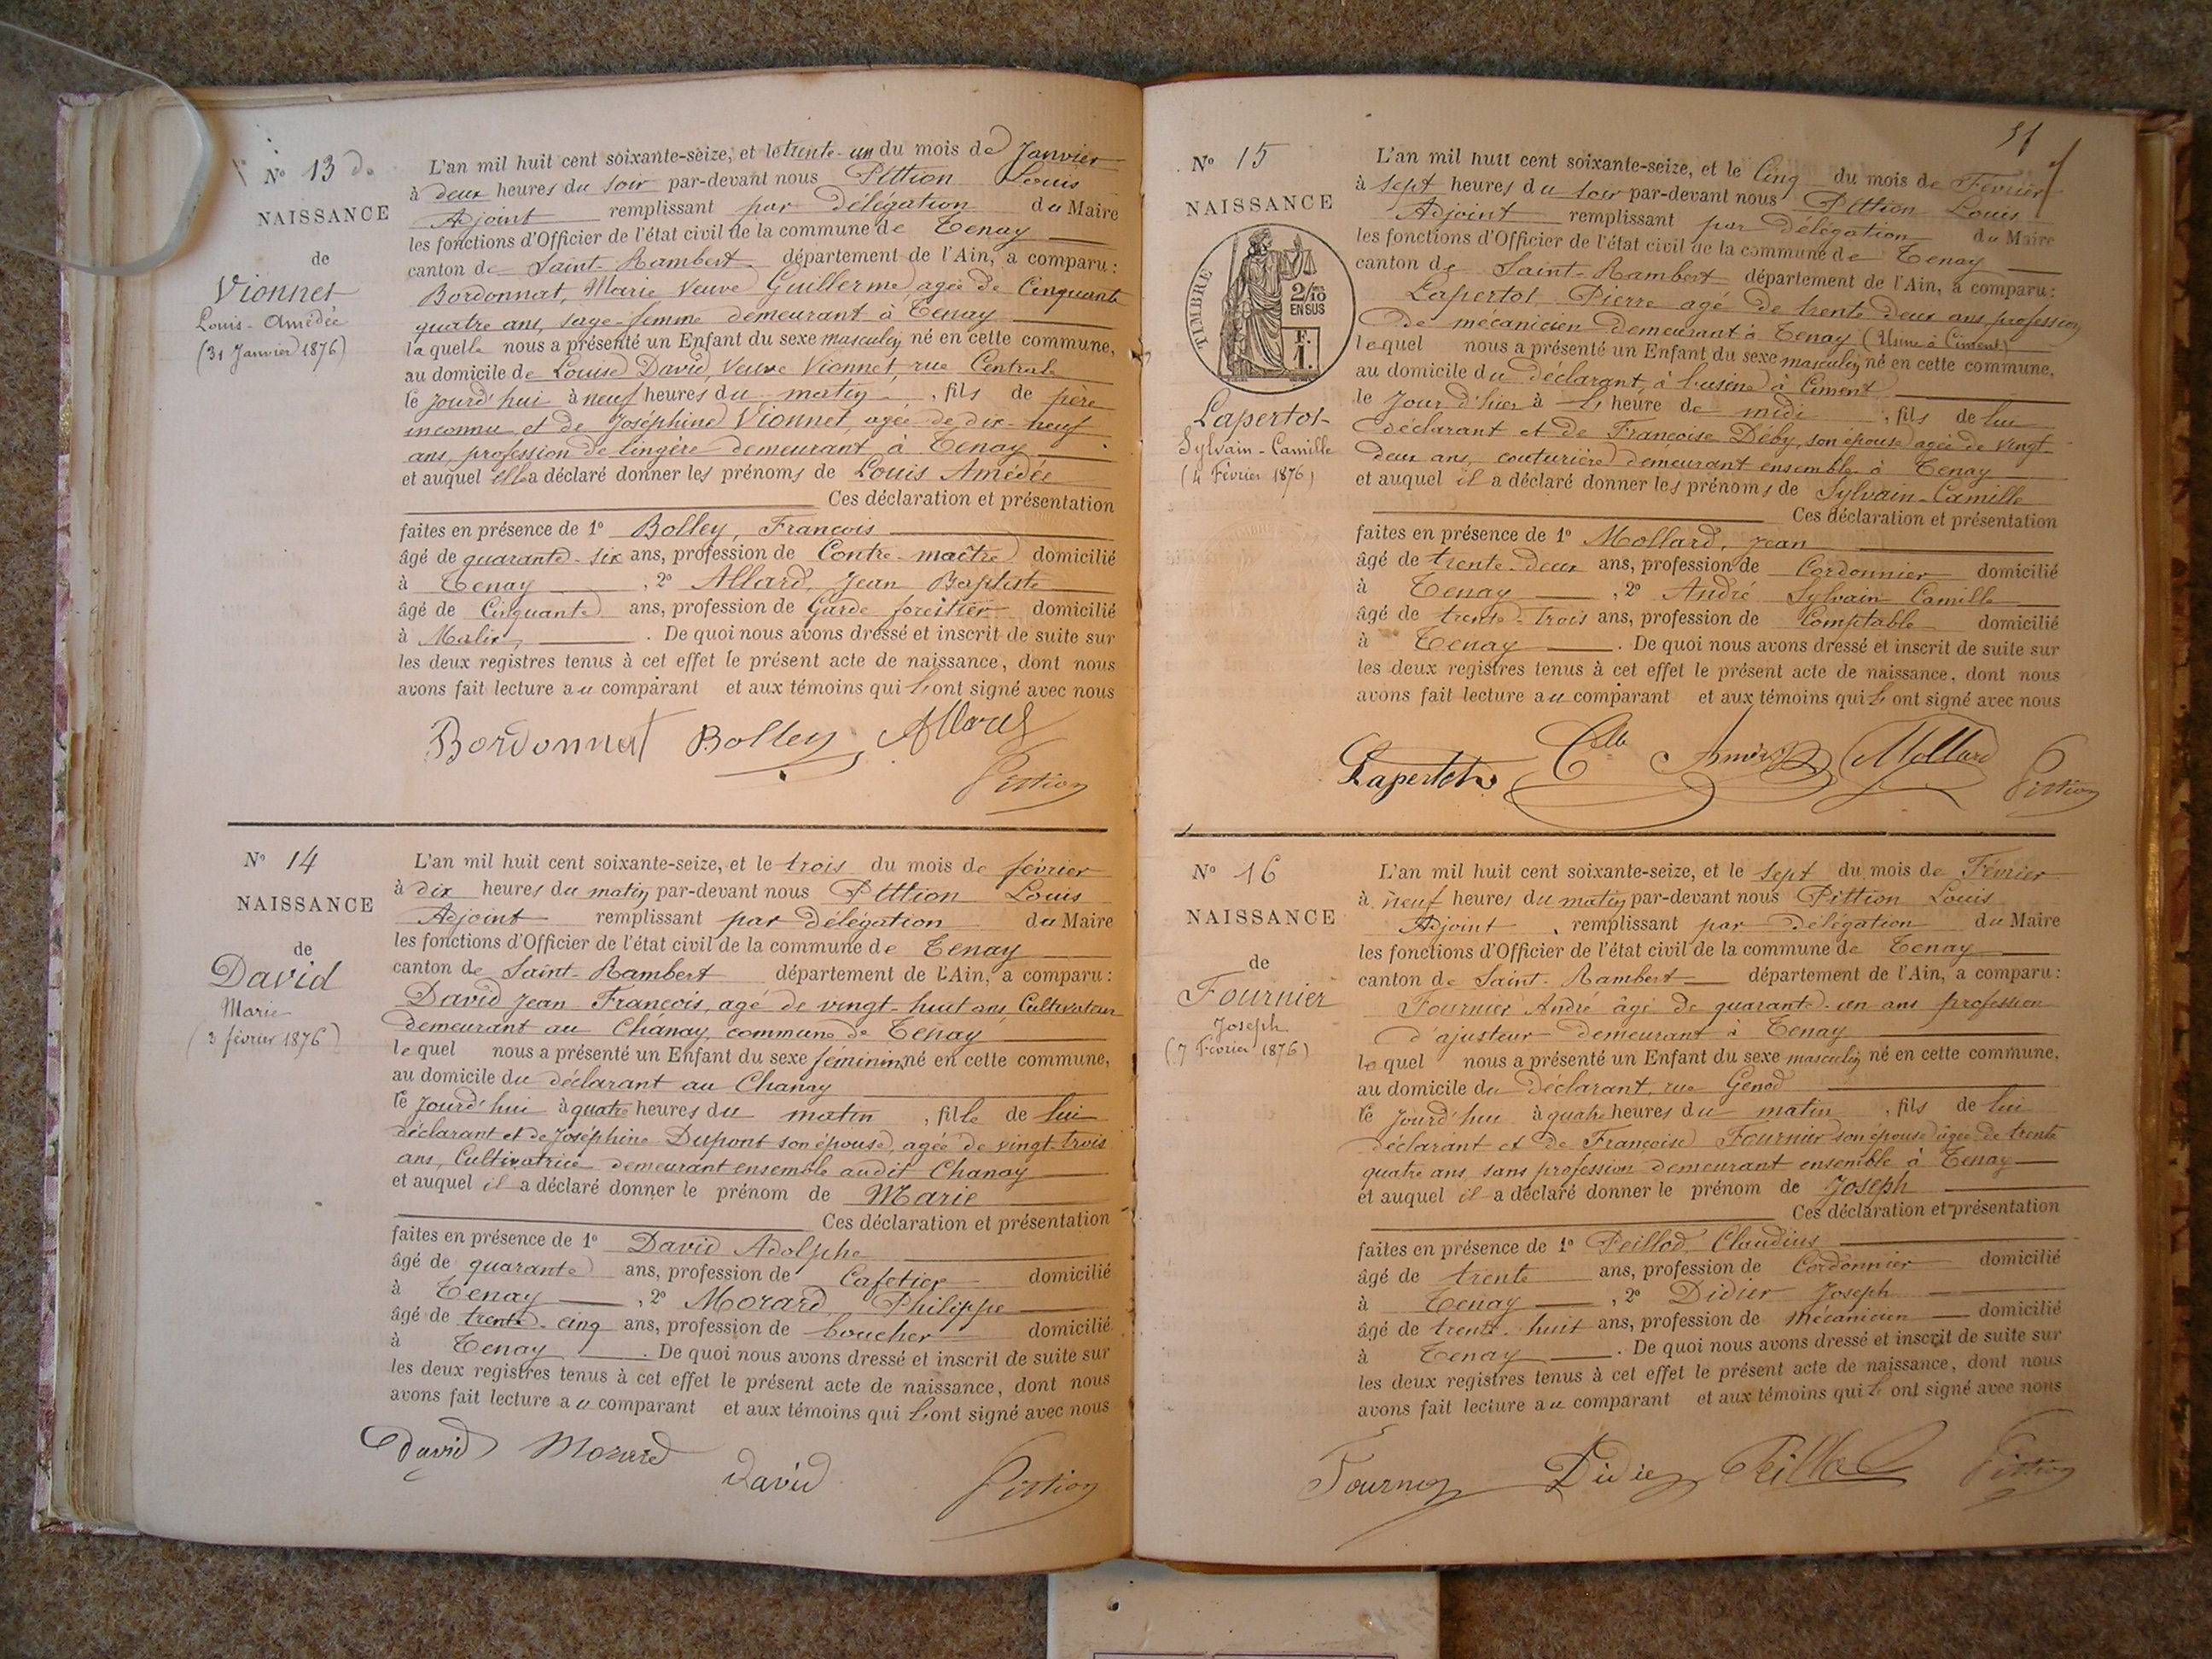 Nº 13
NAISSANCE
de
Vionnet
Louis-Amédée
(31 Janvier 1876)
L'an mil huit cent soixante-seize, et le trente-un du mois de Janvier
à deux heures du soir par-devant nous Pittion Louis
Adjoint remplissant par délégation du Maire
les fonctions d'Officier de l'état civil de la commune de Tenay
canton de Saint-Rambert département de l'Ain, a comparu :
Bordonnat, Marie Veuve Guillerme, agée de Cinquante
quatre ans, sage-femme demeurant à Tenay
laquelle nous a présenté un Enfant du sexe masculin né en cette commune,
au domicile de Louise David, Veuve Vionnet, rue Centrale
le jourd'hui à neuf heures du matin, fils de père
inconnu et de Joséphine Vionnet, agée de dix-neuf
ans, profession de lingère demeurant à Tenay
et auquel elle a déclaré donner les prénoms de Louis Amédée
Ces déclaration et présentation
faites en présence de 1º Bolley, François
âgé de quarante-six ans, profession de Contre-maître domicilié
à Tenay, 2º Allard, Jean Baptiste
âgé de Cinquante ans, profession de Garde forestier domicilié
à Malix, . De quoi nous avons dressé et inscrit de suite sur
les deux registres tenus à cet effet le présent acte de naissance, dont nous
avons fait lecture au comparant et aux témoins qui l'ont signé avec nous
Bordonnat Bolley Allard
Pittion
Nº 14
NAISSANCE
de
David
Marie
(3 février 1876)
L'an mil huit cent soixante-seize, et le trois du mois de février
à dix heures du matin par-devant nous Pittion Louis
Adjoint remplissant par délégation du Maire
les fonctions d'Officier de l'état civil de la commune de Tenay
canton de Saint-Rambert département de l'Ain, a comparu :
David Jean François, agé de vingt-huit ans, Cultivateur
demeurant au Chanay, commune de Tenay
lequel nous a présenté un Enfant du sexe féminin né en cette commune,
au domicile du déclarant au Chanay
le jourd'hui à quatre heures du matin, fille de lui
déclarant et de Joséphine Dupont son épouse, agée de vingt-trois
ans, Cultivatrice demeurant ensemble audit Chanay
et auquel il a déclaré donner le prénom de Marie
Ces déclaration et présentation
faites en présence de 1º David Adolphe
âgé de quarante ans, profession de Cafetier domicilié
à Tenay, 2º Morard Philippe
âgé de trente-cinq ans, profession de boucher domicilié
à Tenay . De quoi nous avons dressé et inscrit de suite sur
les deux registres tenus à cet effet le présent acte de naissance, dont nous
avons fait lecture au comparant et aux témoins qui l'ont signé avec nous
David Morard
David
Pittion
Nº 15
NAISSANCE
TIMBRE
2/10
EN SUS
F.
1.
Lapertot
Sylvain-Camille
(4 Février 1876)
L'an mil huit cent soixante-seize, et le Cinq du mois de Février
à sept heures du soir par-devant nous Pittion Louis
Adjoint remplissant par délégation du Maire
les fonctions d'Officier de l'état civil de la commune de Tenay
canton de Saint-Rambert département de l'Ain, a comparu :
Lapertot Pierre agé de trente deux ans, profession
de mécanicien demeurant à Tenay (Usine à Ciment)
lequel nous a présenté un Enfant du sexe masculin né en cette commune,
au domicile du déclarant, à l'usine à Ciment
le Jour d'hier à l' heure de midi, fils de lui
déclarant et de Françoise Déby, son épouse agée de vingt
deux ans, couturière demeurant ensemble à Tenay
et auquel il a déclaré donner les prénoms de Sylvain-Camille
Ces déclaration et présentation
faites en présence de 1º Mollard, Jean
âgé de trente-deux ans, profession de Cordonnier domicilié
à Tenay, 2º André Sylvain Camille
âgé de trente-trois ans, profession de Comptable domicilié
à Tenay . De quoi nous avons dressé et inscrit de suite sur
les deux registres tenus à cet effet le présent acte de naissance, dont nous
avons fait lecture au comparant et aux témoins qui l'ont signé avec nous
Lapertot Clle André Mollard Pittion
Nº 16
NAISSANCE
de
Fournier
Joseph
(7 Février 1876)
L'an mil huit cent soixante-seize, et le sept du mois de Février
à neuf heures du matin par-devant nous Pittion Louis
Adjoint remplissant par délégation du Maire
les fonctions d'Officier de l'état civil de la commune de Tenay
canton de Saint-Rambert département de l'Ain, a comparu :
Fournier André âgé de quarante-un ans profession
d'ajusteur demeurant à Tenay
lequel nous a présenté un Enfant du sexe masculin né en cette commune,
au domicile du déclarant, rue Genod
le jourd'hui à quatre heures du matin, fils de lui
déclarant et de Françoise Fournier son épouse âgée de trente
quatre ans, sans profession demeurant ensemble à Tenay
et auquel il a déclaré donner le prénom de Joseph
Ces déclaration et présentation
faites en présence de 1º Peillod, Claudius
âgé de trente ans, profession de Cordonnier domicilié
à Tenay, 2º Didier Joseph
âgé de trente-huit ans, profession de mécanicien domicilié
à Tenay . De quoi nous avons dressé et inscrit de suite sur
les deux registres tenus à cet effet le présent acte de naissance, dont nous
avons fait lecture au comparant et aux témoins qui l'ont signé avec nous
Fournier Didier Peillod Pittion